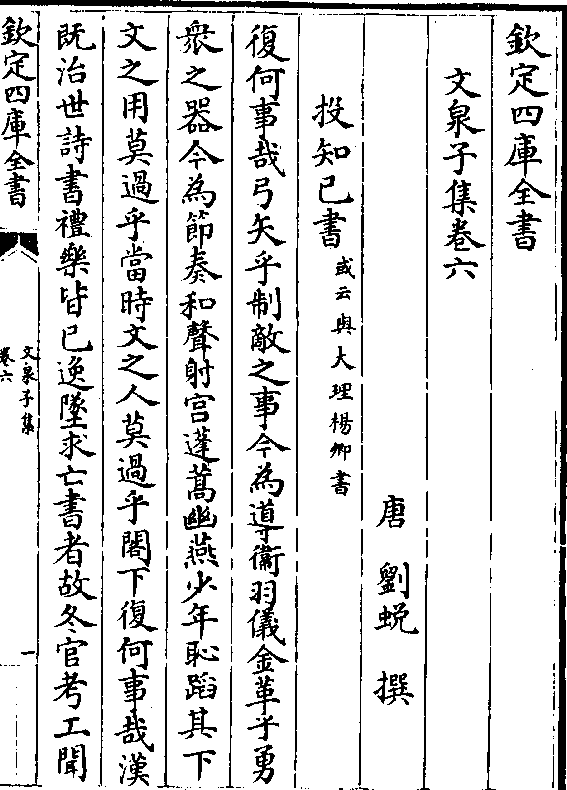 欽定四庫全書
文泉子集卷六
唐 劉蛻 撰
投知己書或云與大理楊卿書
復何事哉弓矢乎制敵之事今為導衛羽儀金革乎勇
衆之器今為節奏和聲射宫蓬蒿幽燕少年恥蹈其下
文之用莫過乎當時文之人莫過乎閤下復何事哉漢
既治世詩書禮樂皆已逸墜求亡書者故冬官考工聞
欽定四庫全書
文泉子集
卷六
一